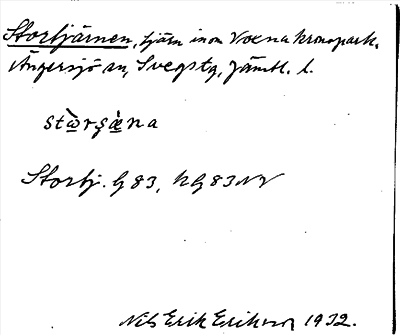 Stortjärnen, tjärn inom Voxna kronopark,
Ängersjö sn, Svegs tg, Jämtl. l.
stὼrʂæ̀na
Stortj. G 83, KG 83 NV
Nils Erik Erikson 1932.